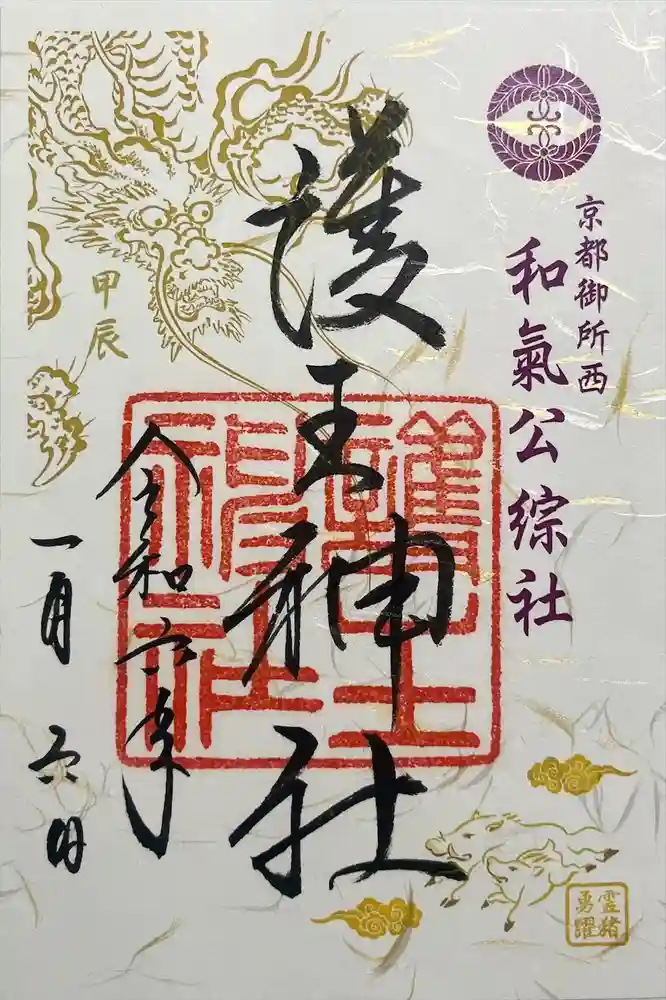 京都御所西
和氣公綜社
護王神社
護王神社
令和六年
一月六日
甲辰
霊猪
勇躍